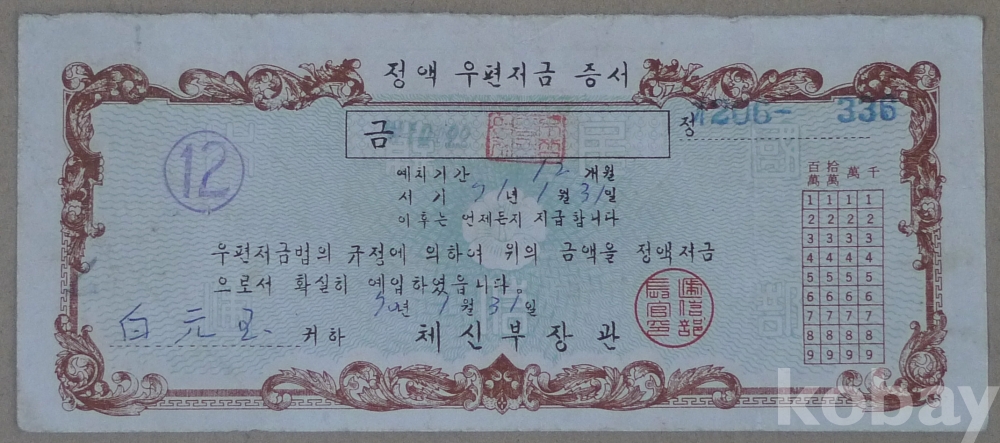 정액 우편저금 증서
금
정
1206- 336
12
예치기간 12 개월
서기 71년 1월 31일
이후는 언제든지 지급합니다
우편저금법의 규정에 의하여 위의 금액을 정액저금
으로서 확실히 예입하였읍니다。
70년 7월 31일
白元玉 귀하
체신부장관
遞信部長官印
百萬 拾萬 萬 千
1 1 1 1
2 2 2 2
3 3 3 3
4 4 4 4
5 5 5 5
6 6 6 6
7 7 7 7
8 8 8 8
9 9 9 9
kobay